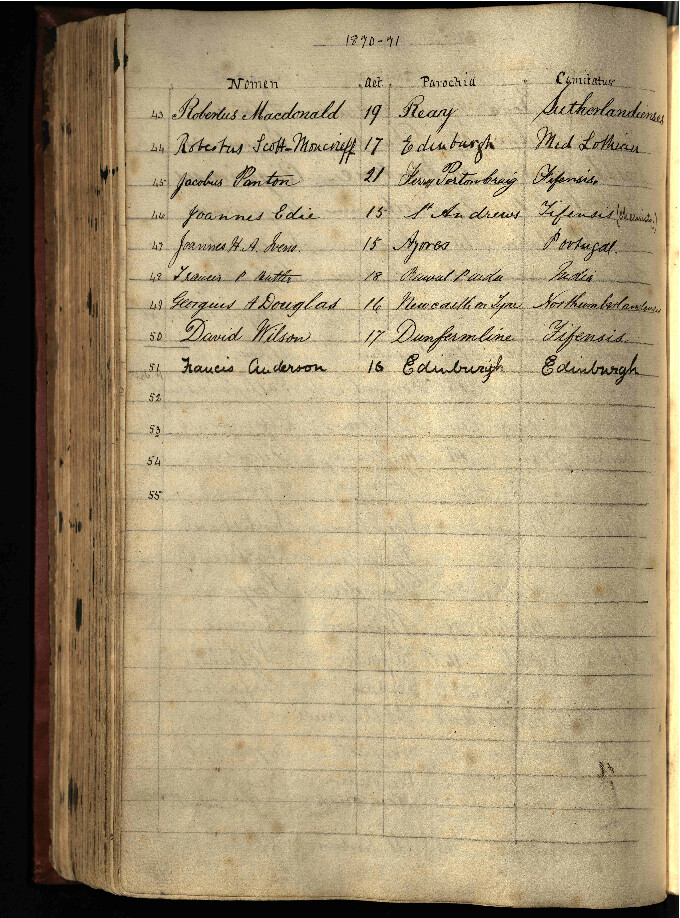 1870-71
Nomen Aet. Parochia Comitatus
43 Robertus Macdonald 19 Reay Sutherlandensis
44 Robertus Scott-Moncrieff 17 Edinburgh Mid Lothian
45 Jacobus Panton 21 Ferry Portoncraig Fifensis.
46 Joannes Edie 15 St Andrews Fifensis
47 Joannes H. A. Ivens. 15 Azores Portugal.
48 Francis P 18 India
49 Georgius A Douglas 16 Newcastle on Tyne Northumberlandensis
50 David Wilson 17 Dunfermline Fifensis
51 Francis Anderson 16 Edinburgh Edinburgh
52
53
54
55